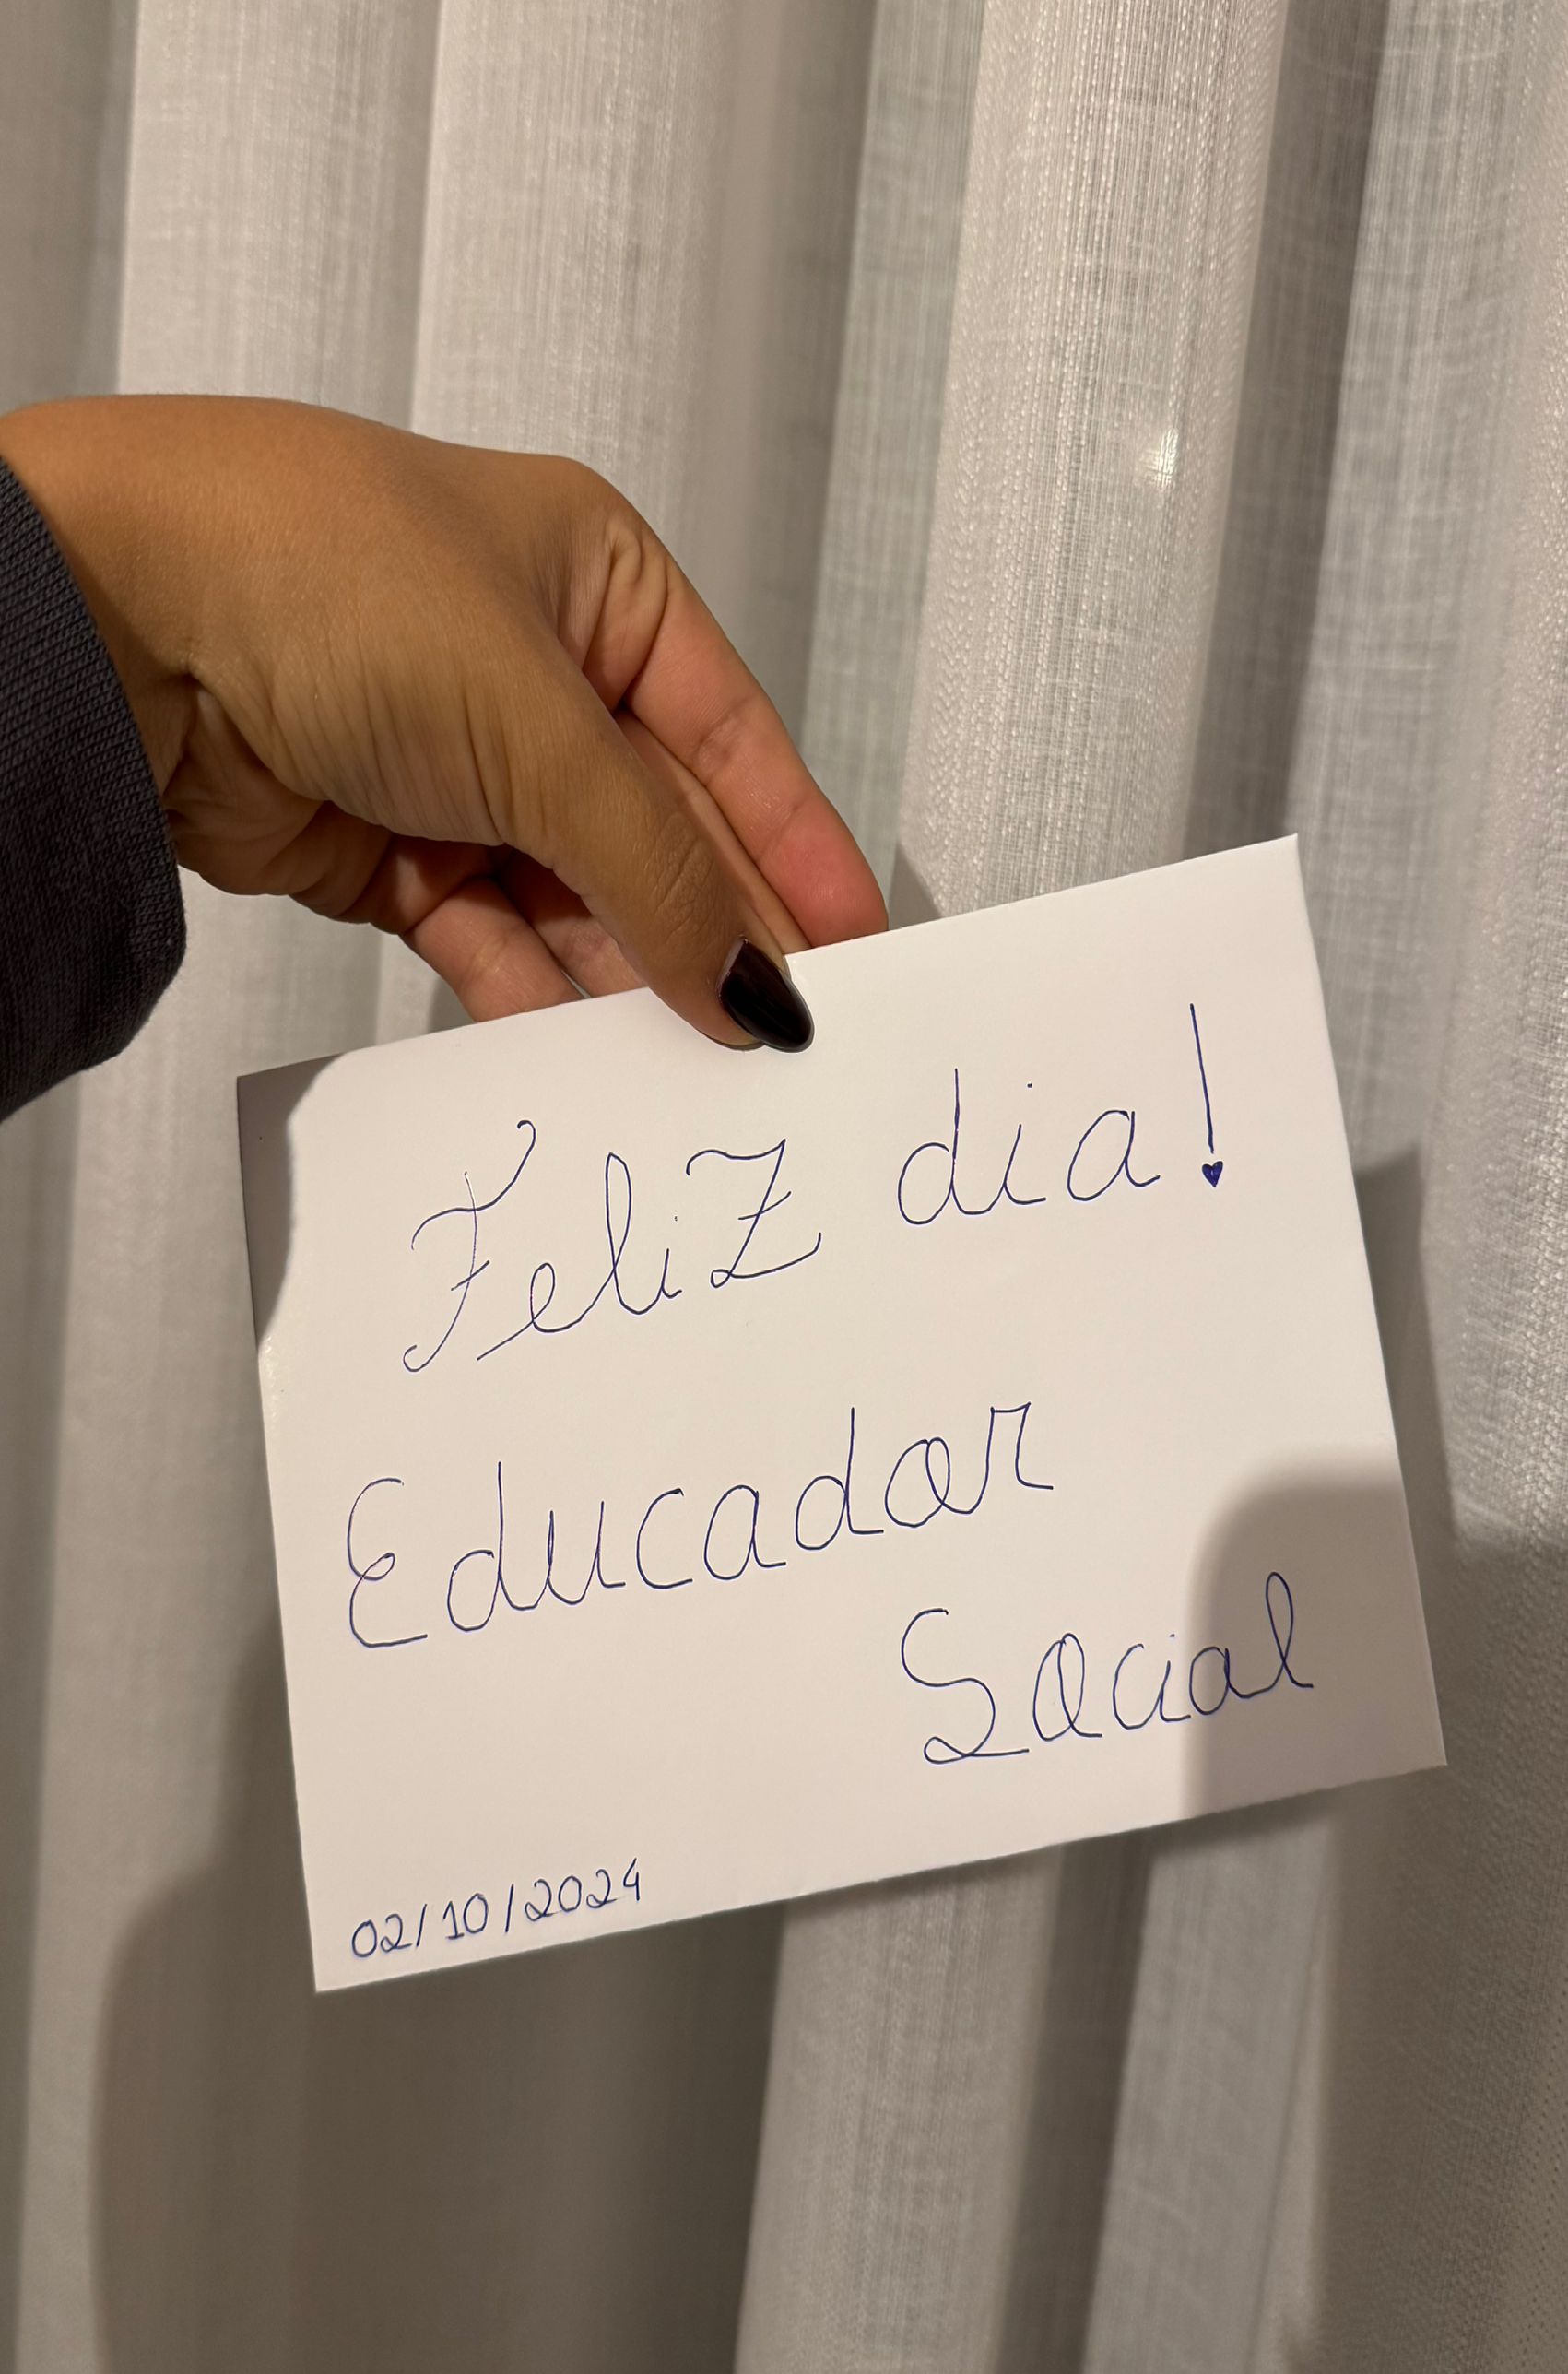 Feliz dia!
Educador
Social
02/10/2024